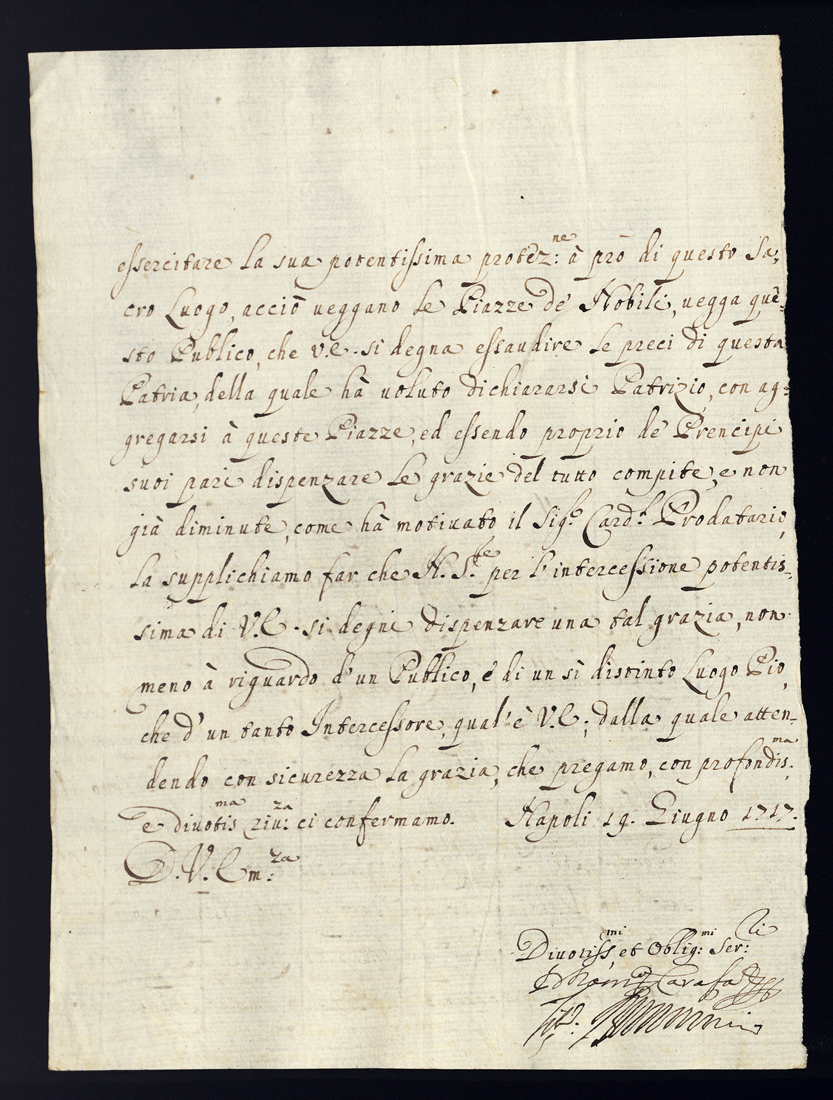 essercitare la sua potentissima protez:ne à prò di questo Sa,
cro Luogo, acciò ueggano le Piazze de' Nobili, uegga que,
sto Publico, che V.E. si degna essaudire le preci di questa
Patria, della quale hà uoluto dichiararsi Patrizio, con ag,
gregarsi à queste Piazze, ed essendo proprio de' Prencipi
suoi pari dispenzare le grazie del tutto compite, e non
già diminute, come hà motiuato il Sig.r Card.l Prodatario,
la supplichiamo far che N. S.re per l'intercessione potentis,
sima di V.E. si degni dispenzare una tal grazia, non
meno à riguardo d'un Publico, e di un sì distinto Luogo Pio,
che d'un tanto Intercessore, qual'è V.E.; dalla quale atten,
dendo con sicurezza la grazia, che pregamo, con profondis:ma
e diuotis:ma riu:za ci confermamo. Napoli 19. Giugno 1717.
D. V. Em:za
Diuotiss:mi et Oblig:mi Ser:ri
Carafa